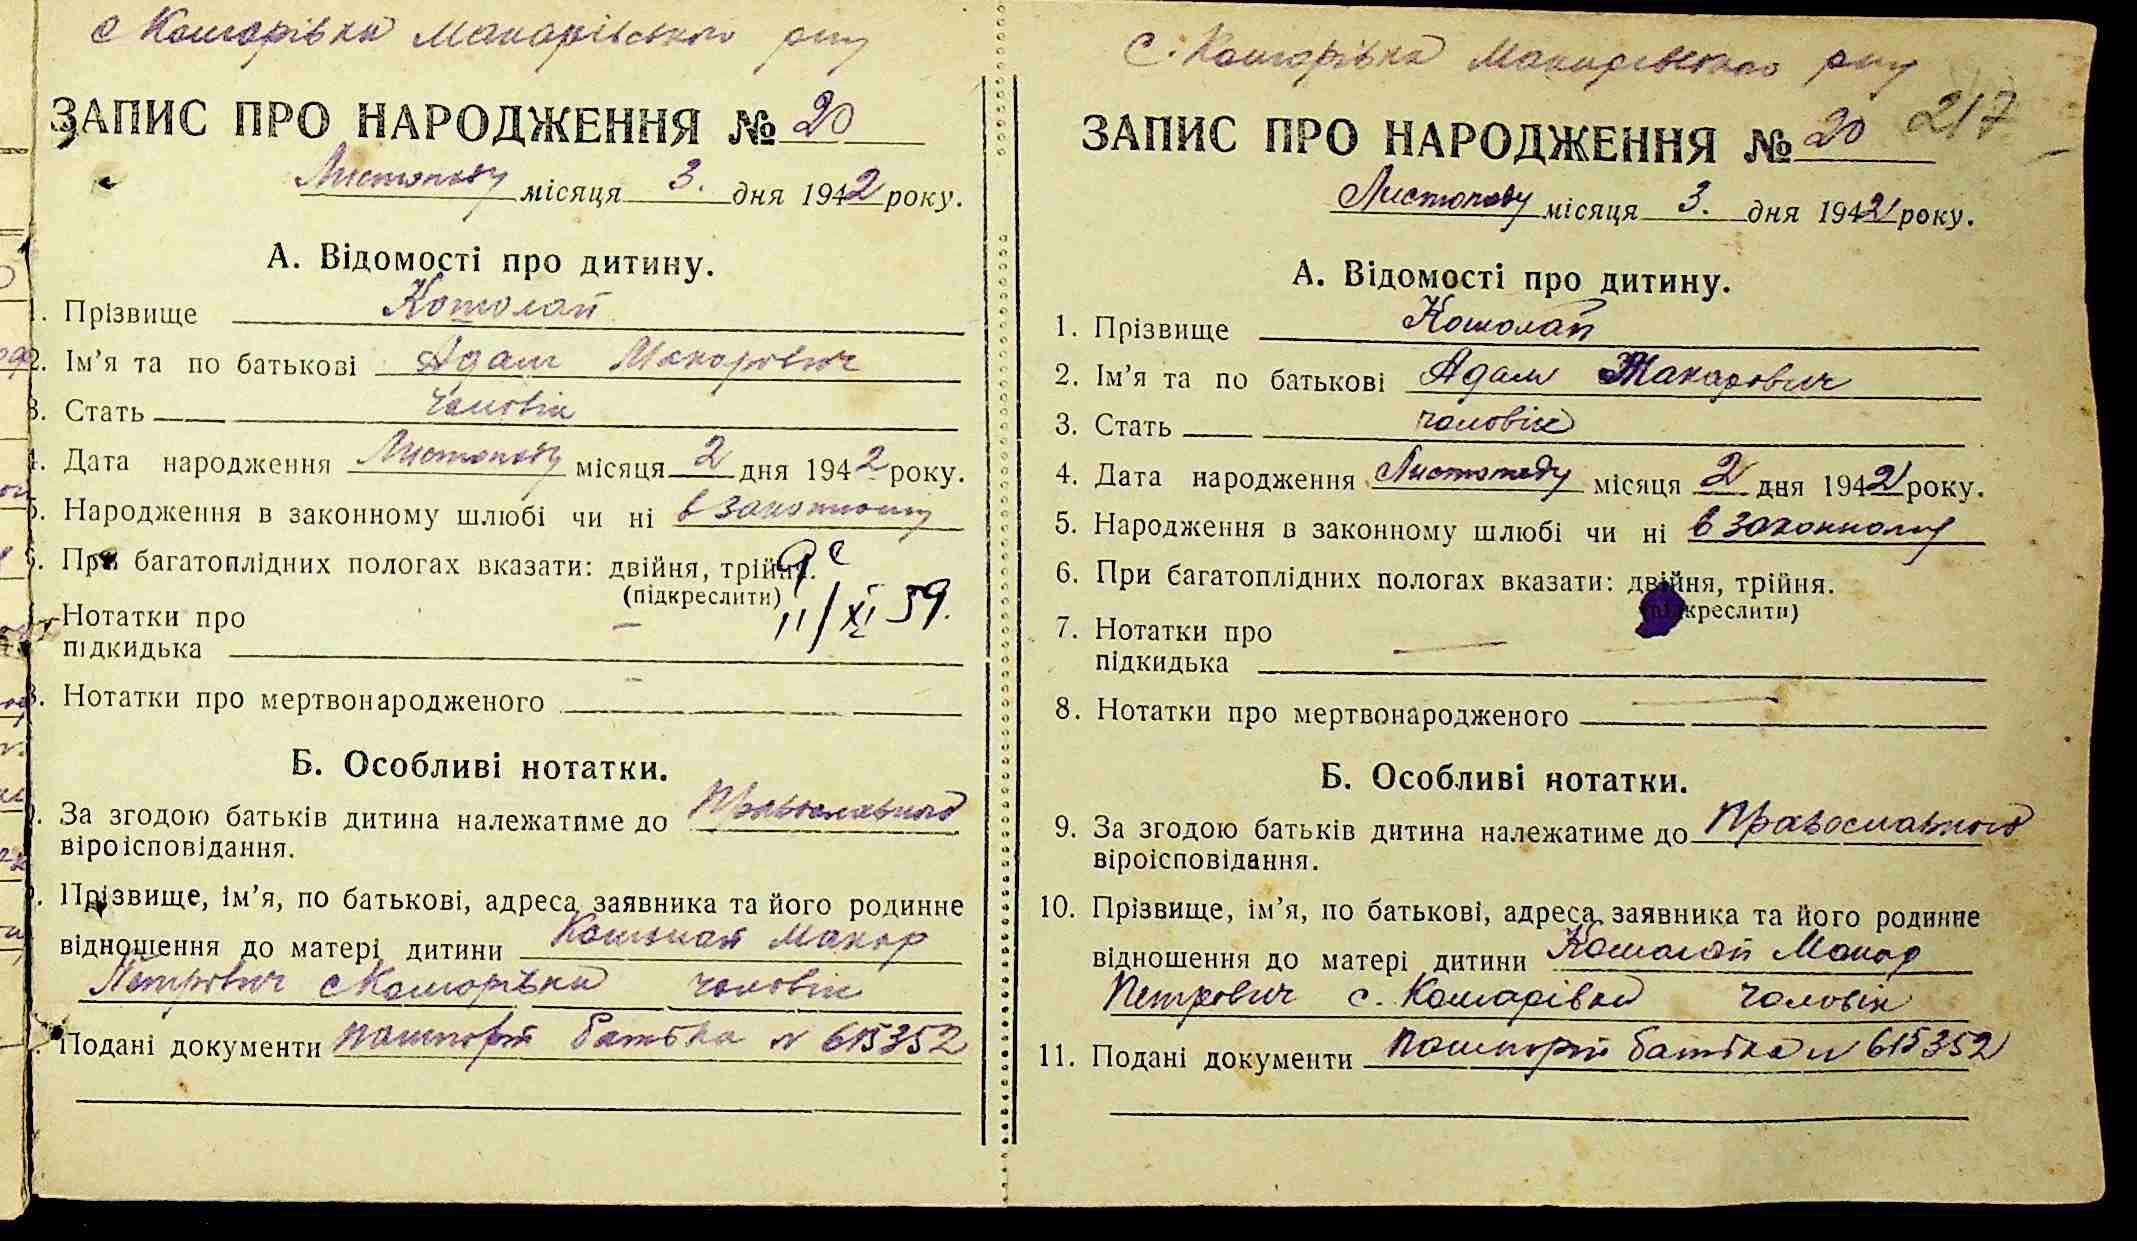 с Комарівка Макарівського р-ну
ЗАПИС ПРО НАРОДЖЕННЯ № 20
Листопаду місяця 3. дня 1942 року.
А. Відомості про дитину.
1. Прізвище Кошолап
2. Ім’я та по батькові Адам Макарович
3. Стать чоловік
4. Дата народження Листопаду місяця 2 дня 1942 року.
5. Народження в законному шлюбі чи ні в законному
6. При багатоплідних пологах вказати: двійня, трійня.
(підкреслити)
11/XI 59.
Нотатки про
підкидька —
8. Нотатки про мертвонародженого —
Б. Особливі нотатки.
За згодою батьків дитина належатиме до Православного
віроісповідання.
Прізвище, ім’я, по батькові, адреса заявника та його родинне
відношення до матері дитини Кошолап Макар
Петрович с Комарівка чоловік
Подані документи пашпорт батька № 615352
с. Комарівка Макарівського р-ну
217
ЗАПИС ПРО НАРОДЖЕННЯ № 20
Листопаду місяця 3. дня 1942 року.
А. Відомості про дитину.
1. Прізвище Кошолап
2. Ім’я та по батькові Адам Макарович
3. Стать чоловік
4. Дата народження Листопаду місяця 2 дня 1942 року.
5. Народження в законному шлюбі чи ні в законному
6. При багатоплідних пологах вказати: двійня, трійня.
(підкреслити)
7. Нотатки про
підкидька —
8. Нотатки про мертвонародженого —
Б. Особливі нотатки.
9. За згодою батьків дитина належатиме до Православного
віроісповідання.
10. Прізвище, ім’я, по батькові, адреса заявника та його родинне
відношення до матері дитини Кошолап Макар
Петрович с. Комарівка чоловік
11. Подані документи пашпорт батька № 615352